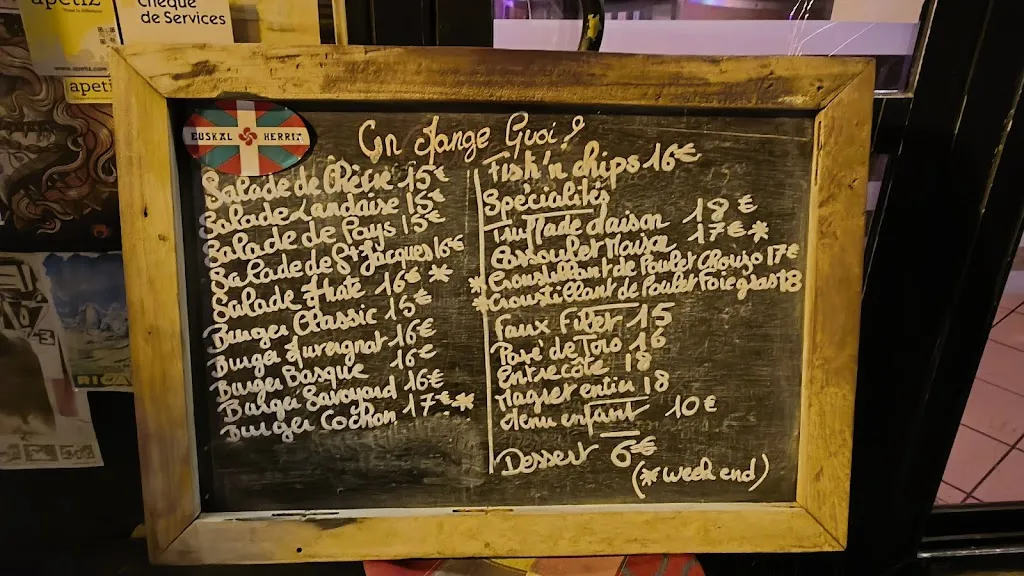 apetiz
www.apetiz.com
apetiz
chèque
de Services
EUSKAL HERRIA
On Mange Quoi ?
Salade de Chèvre 15€
Salade Landaise 15€
Salade de Pays 15€
Salade de St Jacques 16€
Salade Haute 16€ *
Burger Classic 15€
Burger Auvergnat 16€
Burger Basque 16€
Burger Savoyard 16€
Burger Cochon 17€*
Fish'n chips 16€
Spécialités
Truffade Maison 18€
Cassoulet Maison 17€*
*Croustillant de Poulet Chorizo 17€
*Croustillant de Poulet Foie gras 18
Faux Filet 15
Pavé de Toro 16
Entrecôte 18
Magret entier 18
Menu enfant 10€
Dessert 6€
(* week end)